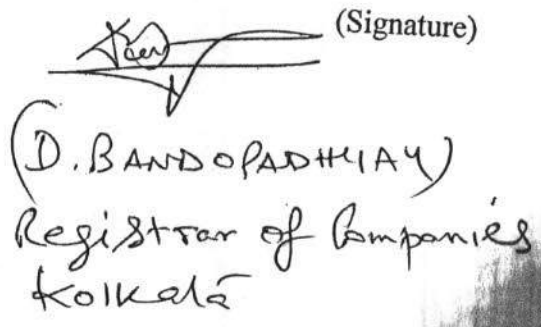 (Signature)
(D. BANDOPADHYAY)
Registrar of Companies
Kolkata